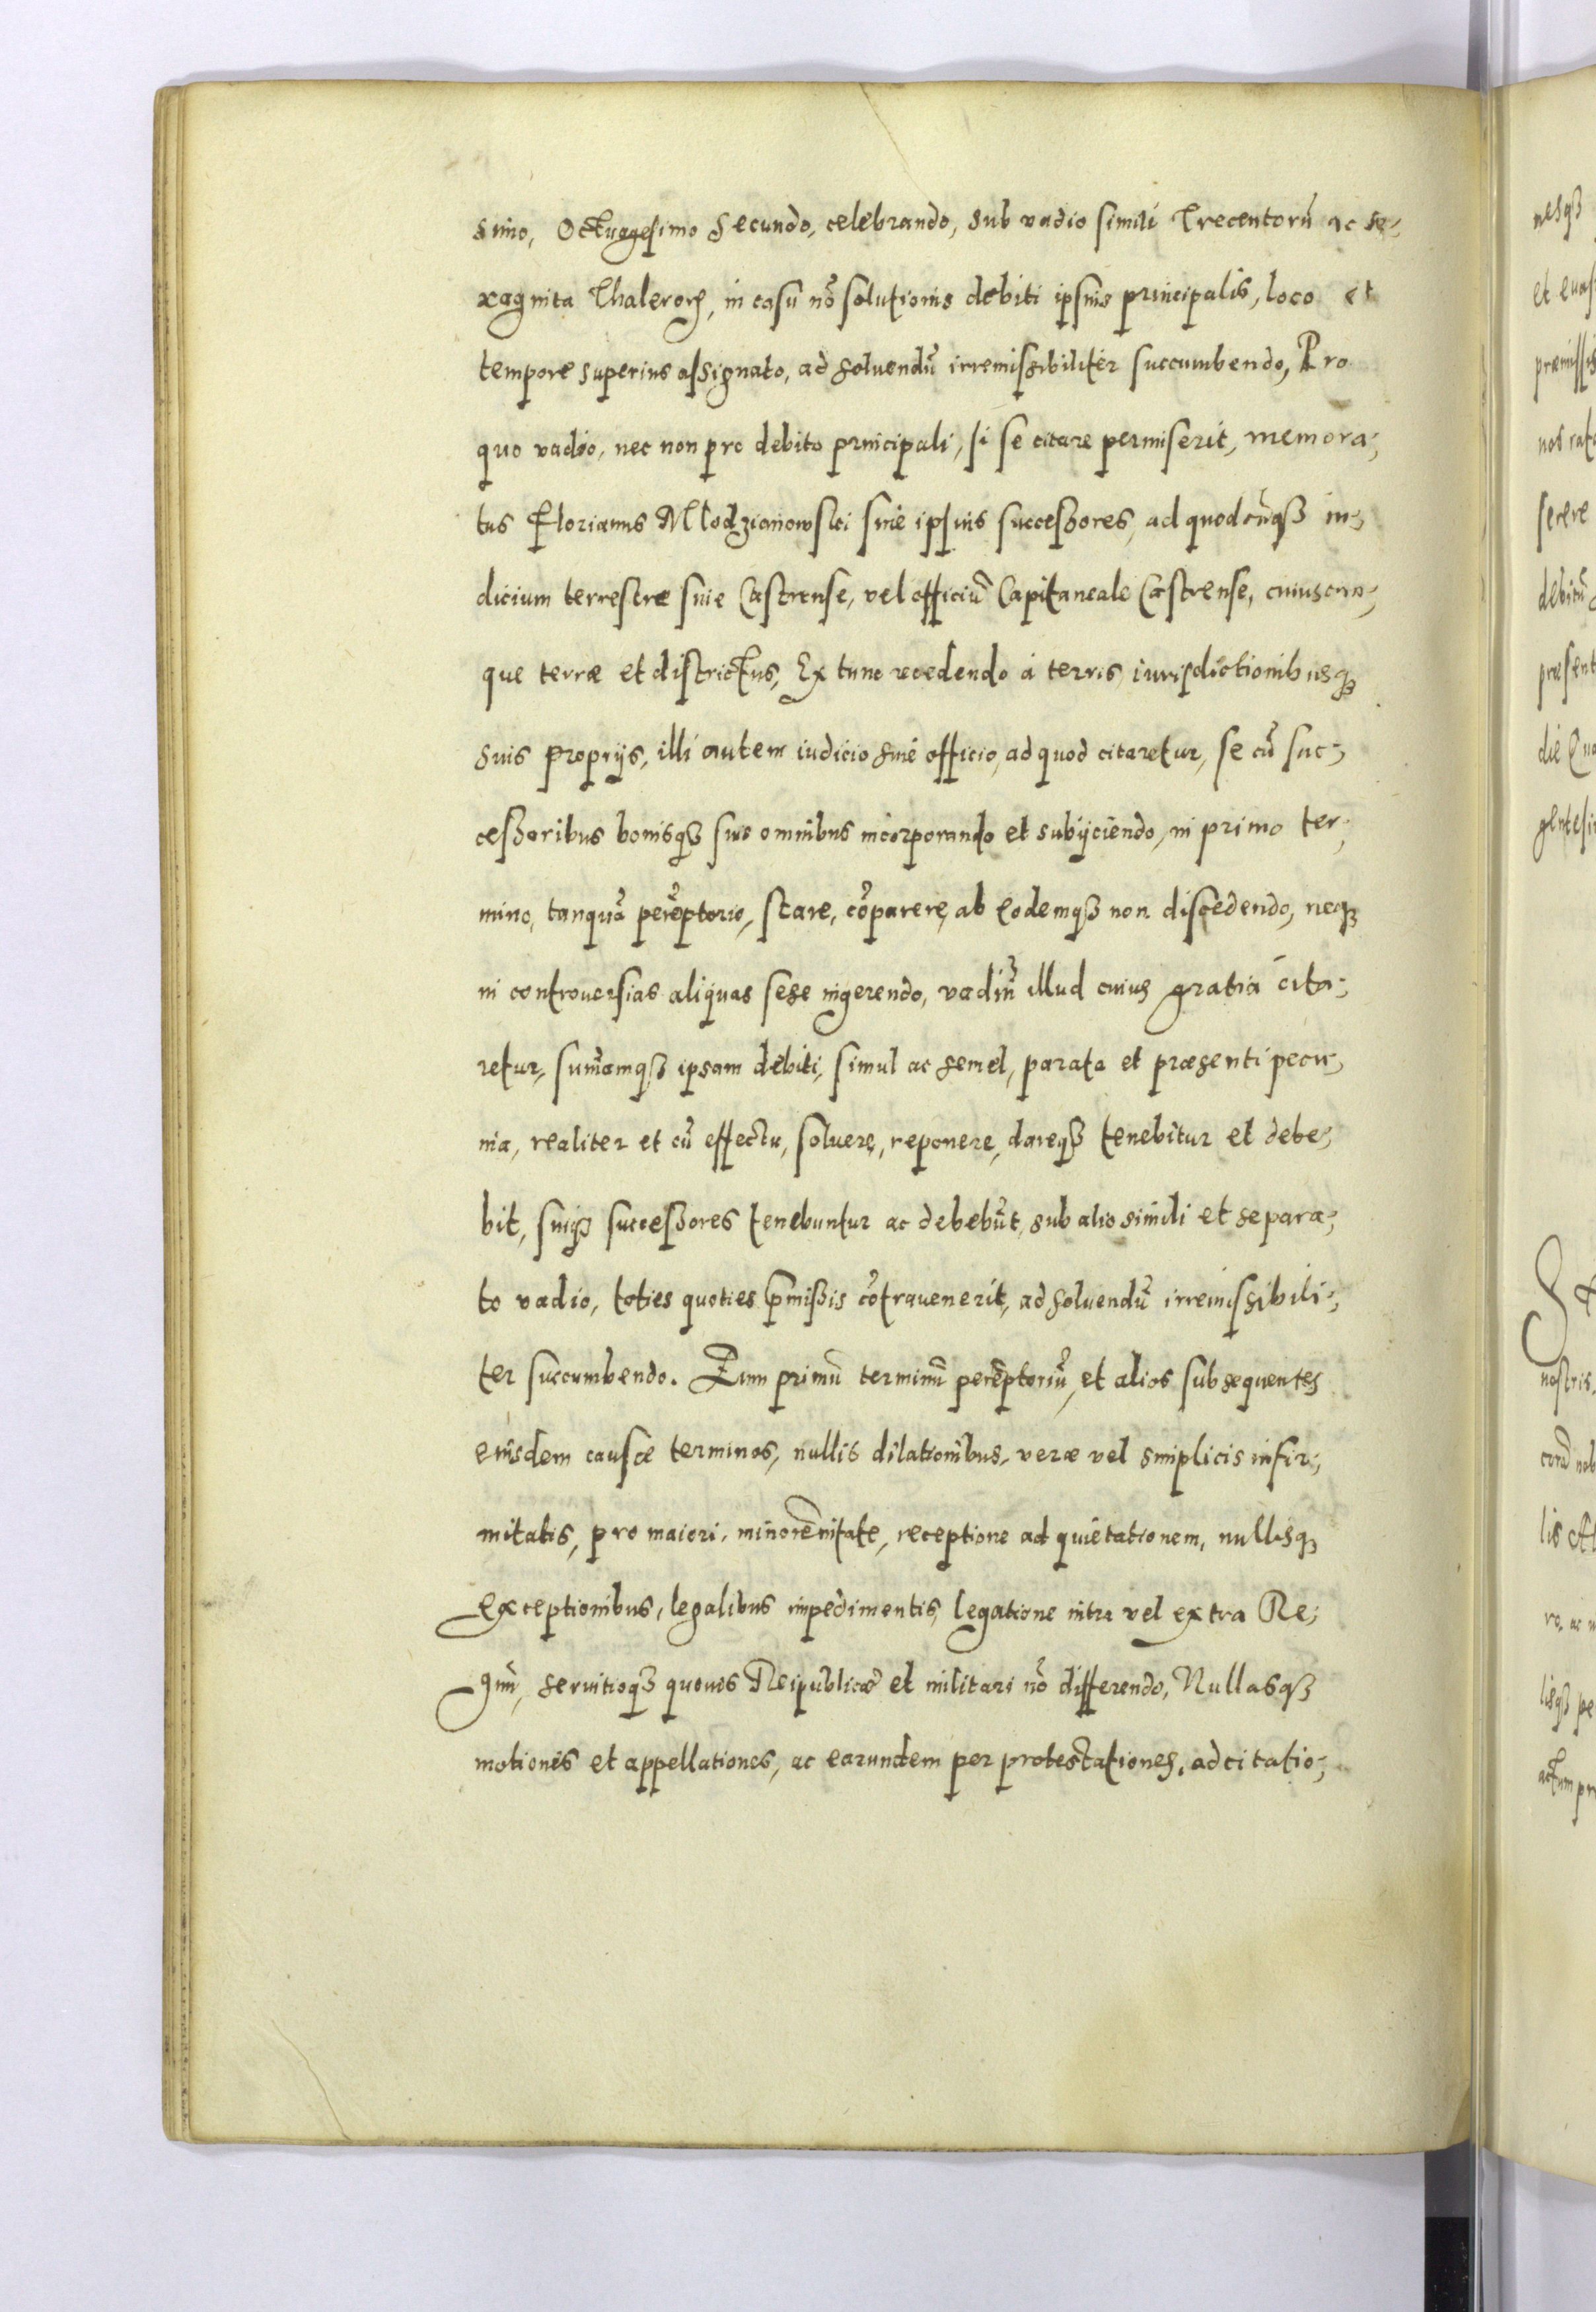 simo, Octuagesimo Secundo, celebrando, sub vadio simili Trecentorū ac se-
xaginta Thaleroꝝ, in casu nō solutionis debiti ipsius principalis, loco et
tempore superius assignato, ad soluendū irremissibiliter succumbendo, Pro
quo vadio, nec non pro debito principali, si se citare permiserit, memora-
tus Florianus Mlodzianowski siue ipsius successores, ad quodcūqꝫ iu-
dicium terrestre siue Castrense, vel officiū Capitaneale Castrense, cuiuscun-
que terræ et districtus, Ex tunc recedendo à terris iurisdictionibusqꝫ
suis proprijs, illi autem iudicio siue officio, ad quod citaretur, se cū suc-
cessoribus bonisqꝫ suis omnibus incorporando et subijciendo, in primo ter-
mino, tanquā perēptorio, stare, cōparere, ab eodemqꝫ non discedendo, neqꝫ
in controuersias aliquas sese ingerendo, vadiū illud cuius gratia cita-
retur, sum̄amqꝫ ipsam debiti, simul ac semel, parata et præsenti pecu-
nia, realiter et cū effectu, soluere, reponere, dareqꝫ tenebitur et debe-
bit, suiqꝫ successores tenebuntur ac debebūt, sub alio simili et separa-
to vadio, toties quoties p̄missis cōtrauenerit, ad soluendū irremissibili-
ter succumbendo. Eum primū terminū perēptoriū, et alios subsequentes
eiusdem causæ terminos, nullis dilationibus, veræ vel simplicis infir-
mitatis, pro maiori, minorēnitate, receptione ad quietationem, nullisqꝫ
exceptionibus, legalibus impedimentis, legatione intra vel extra Re-
gnū, seruitioqꝫ quouis Reipublicæ et militari nō differendo, Nullasqꝫ
motiones et appellationes, ac earundem per protestationes, ad citatio-
nesqꝫ
et euas
præmiss
nos rat
serere
debitū
præsent
die
gentesi
nostris,
corā nob
lis
ro, ac
lisqꝫ pe
actum pr